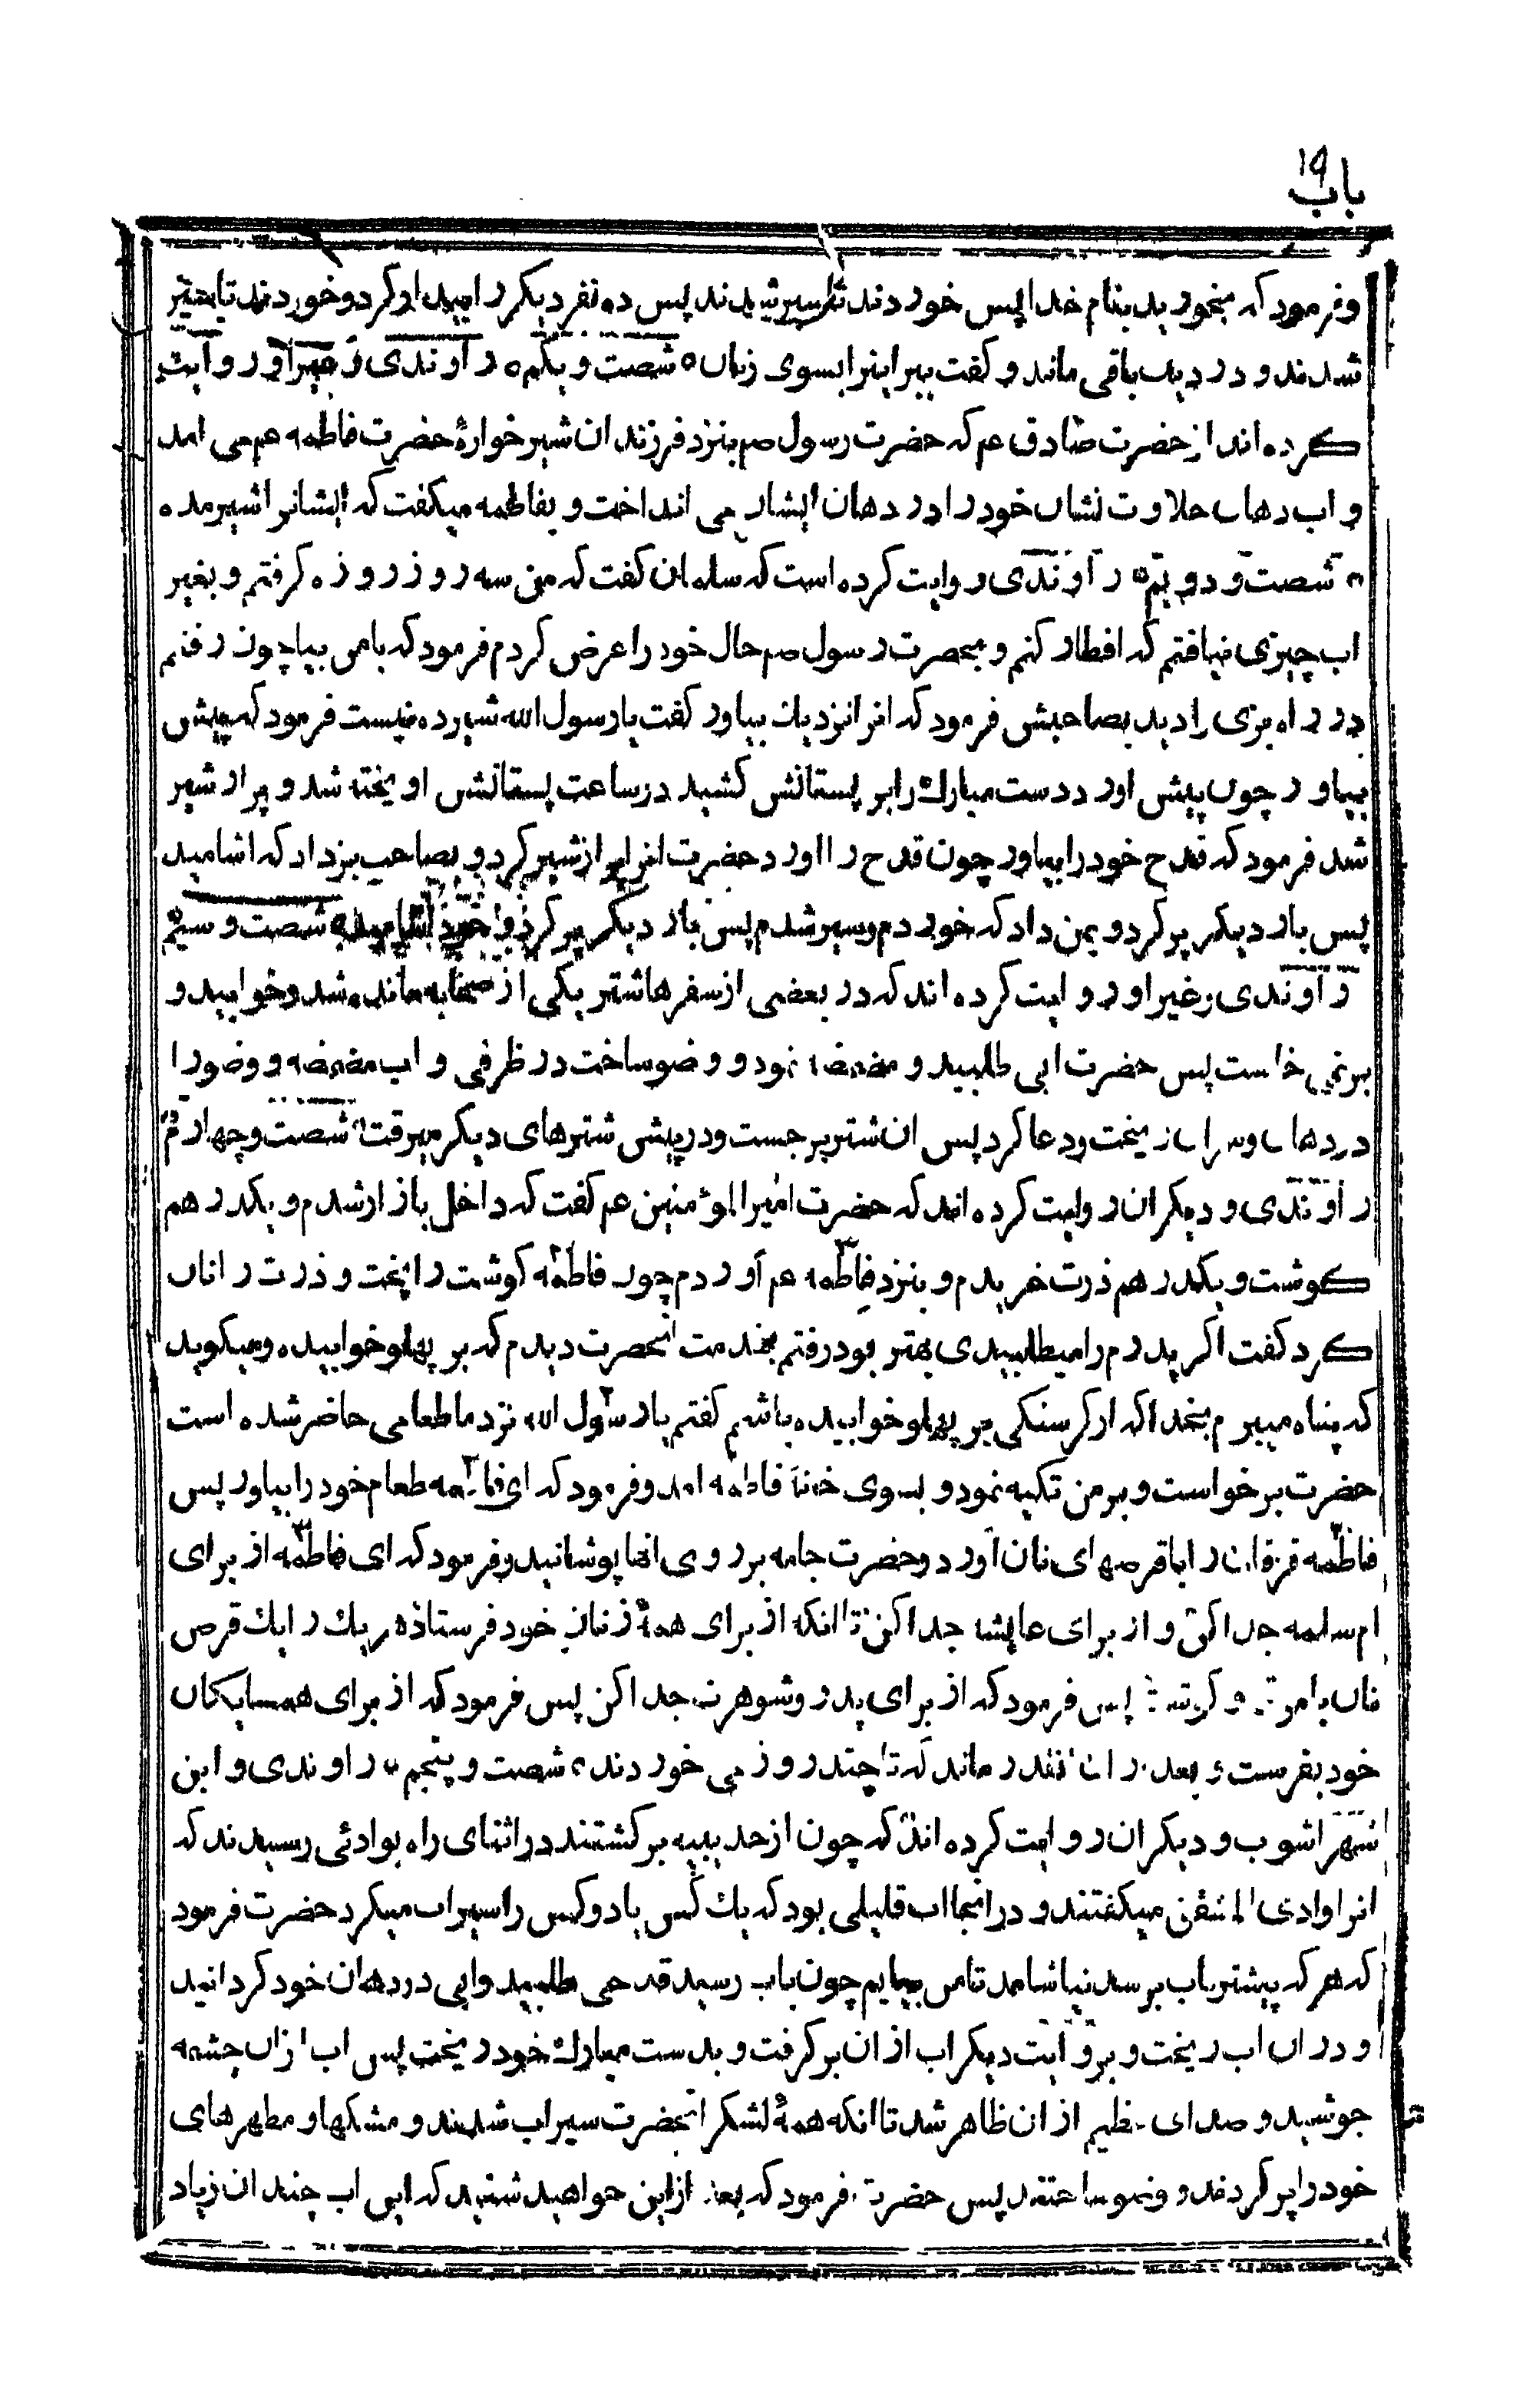 باب ۱۹
و فرمود که بخورید بنام خدا پس خوردند تا سیر شدند پس ده نفر دیگر را امید او کرد و خوردند تا سیر
شدند و در دیک باقی ماند و گفت ببر اینرا بسوی زنان ه شصت و یکم ه راوندی و غیر او روایت
کرده‌اند از حضرت صادق عم که حضرت رسول صم بنزد فرزندان شیر خوارهٔ حضرت فاطمه عم می امد
و اب دهان حلاوت نشان خود را در دهان ایشان می انداخت و بفاطمه میکفت که ایشانرا شیر مده
ه شصت و دویم ه راوندی روایت کرده است که سلمان کفت که من سه روز روزه کرفتم و بغیر
اب چیزی نیافتم که افطار کنم و بحضرت رسول صم حال خود را عرض کردم فرمود که با من بیا چون رفتم
در راه بزی را دید بصاحبش فرمود که انرا نزدیك بیاور کفت یا رسول الله شیرده نیست فرمود که پیش
بیاور چون پیش اورد دست مبارك را بر پستانش کشید در ساعت پستانش اویخته شد و پر از شیر
شد فرمود که قدح خود را بیاور چون قدح را اورد حضرت انرا پر از شیر کرد و بصاحب بز داد که اشامید
پس بار دیکر پر کرد و بمن داد که خوردم و سیر شدم پس بار دیکر پر کرد و خود اشامید ه شصت و سیم
راوندی و غیر او روایت کرده اند که در بعضی از سفرها شتر یکی از صحابه مانده شد و خوابید و
برنمی خاست پس حضرت ابی طلبید و مضمضه نمود و وضو ساخت در ظرفی و اب مضمضه و وضو را
در دهان و سر ان ریخت و دعا کرد پس ان شتر برجست و در پیش شترهای دیکر میرفت ه شصت و چهارم
راوندی و دیکران روایت کرده اند که حضرت امیر المؤمنین عم کفت که داخل بازار شدم و یکدرهم
کوشت و یکدرهم ذرت خریدم و بنزد فاطمه عم اوردم چون فاطمه کوشت را پخت و ذرت را نان
کرد کفت اکر پدرم را میطلبیدی بهتر بود رفتم بخدمت انحضرت دیدم که بر پهلو خوابیده و میکوید
که پناه میبرم بخدا که از کرسنکی بر پهلو خوابیده باشم کفتم یا رسول الله نزد ما طعامی حاضر شده است
حضرت برخواست و بر من تکیه نمود و بسوی خانهٔ فاطمه امد و فرمود که ای فاطمه طعام خود را بیاور پس
فاطمه قزقان را با قرصهای نان آورد و حضرت جامه بر روی انها پوشانید و فرمود که ای فاطمه از برای
ام سلمه جدا کن و از برای عایشه جدا کن تا انکه از برای همهٔ زنان خود فرستاد هر یك را یك قرص
نان با مرق و کوشت پس فرمود که از برای پدر و شوهرت جدا کن پس فرمود که از برای همسایکان
خود بفرست و بعد از ان انقدر ماند که تا چند روز می خوردند ه شصت و پنجم ه راوندی و ابن
شهر اشوب و دیکران روایت کرده اند که چون از حدیبیه برکشتند در اثنای راه بوادئی رسیدند که
انرا وادی المشقق میکفتند و در انجا اب قلیلی بود که یك کس یا دو کس را سیراب میکرد حضرت فرمود
که هر که پیشتر باب برسد نیاشامد تا من بیایم چون باب رسید قدحی طلبید و ابی در دهان خود کردانید
و در ان اب ریخت و بروایت دیکر اب از ان برکرفت و بدست مبارك خود ریخت پس اب از ان چشمه
جوشید و صدای عظیم از ان ظاهر شد تا انکه همهٔ لشکر انحضرت سیراب شدند و مشکها و مطهرهای
خود را پر کردند و وضو ساختند پس حضرت فرمود که بعد از این خواهید شنید که این اب چندان زیاد